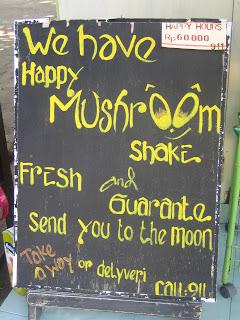 HAPPY HOURS
Rp 60.000
911
We have
Happy
Mushroom
Shake
Fresh and
Guarante
Send you to the moon
Take
a way
or delyveri
Call: 911